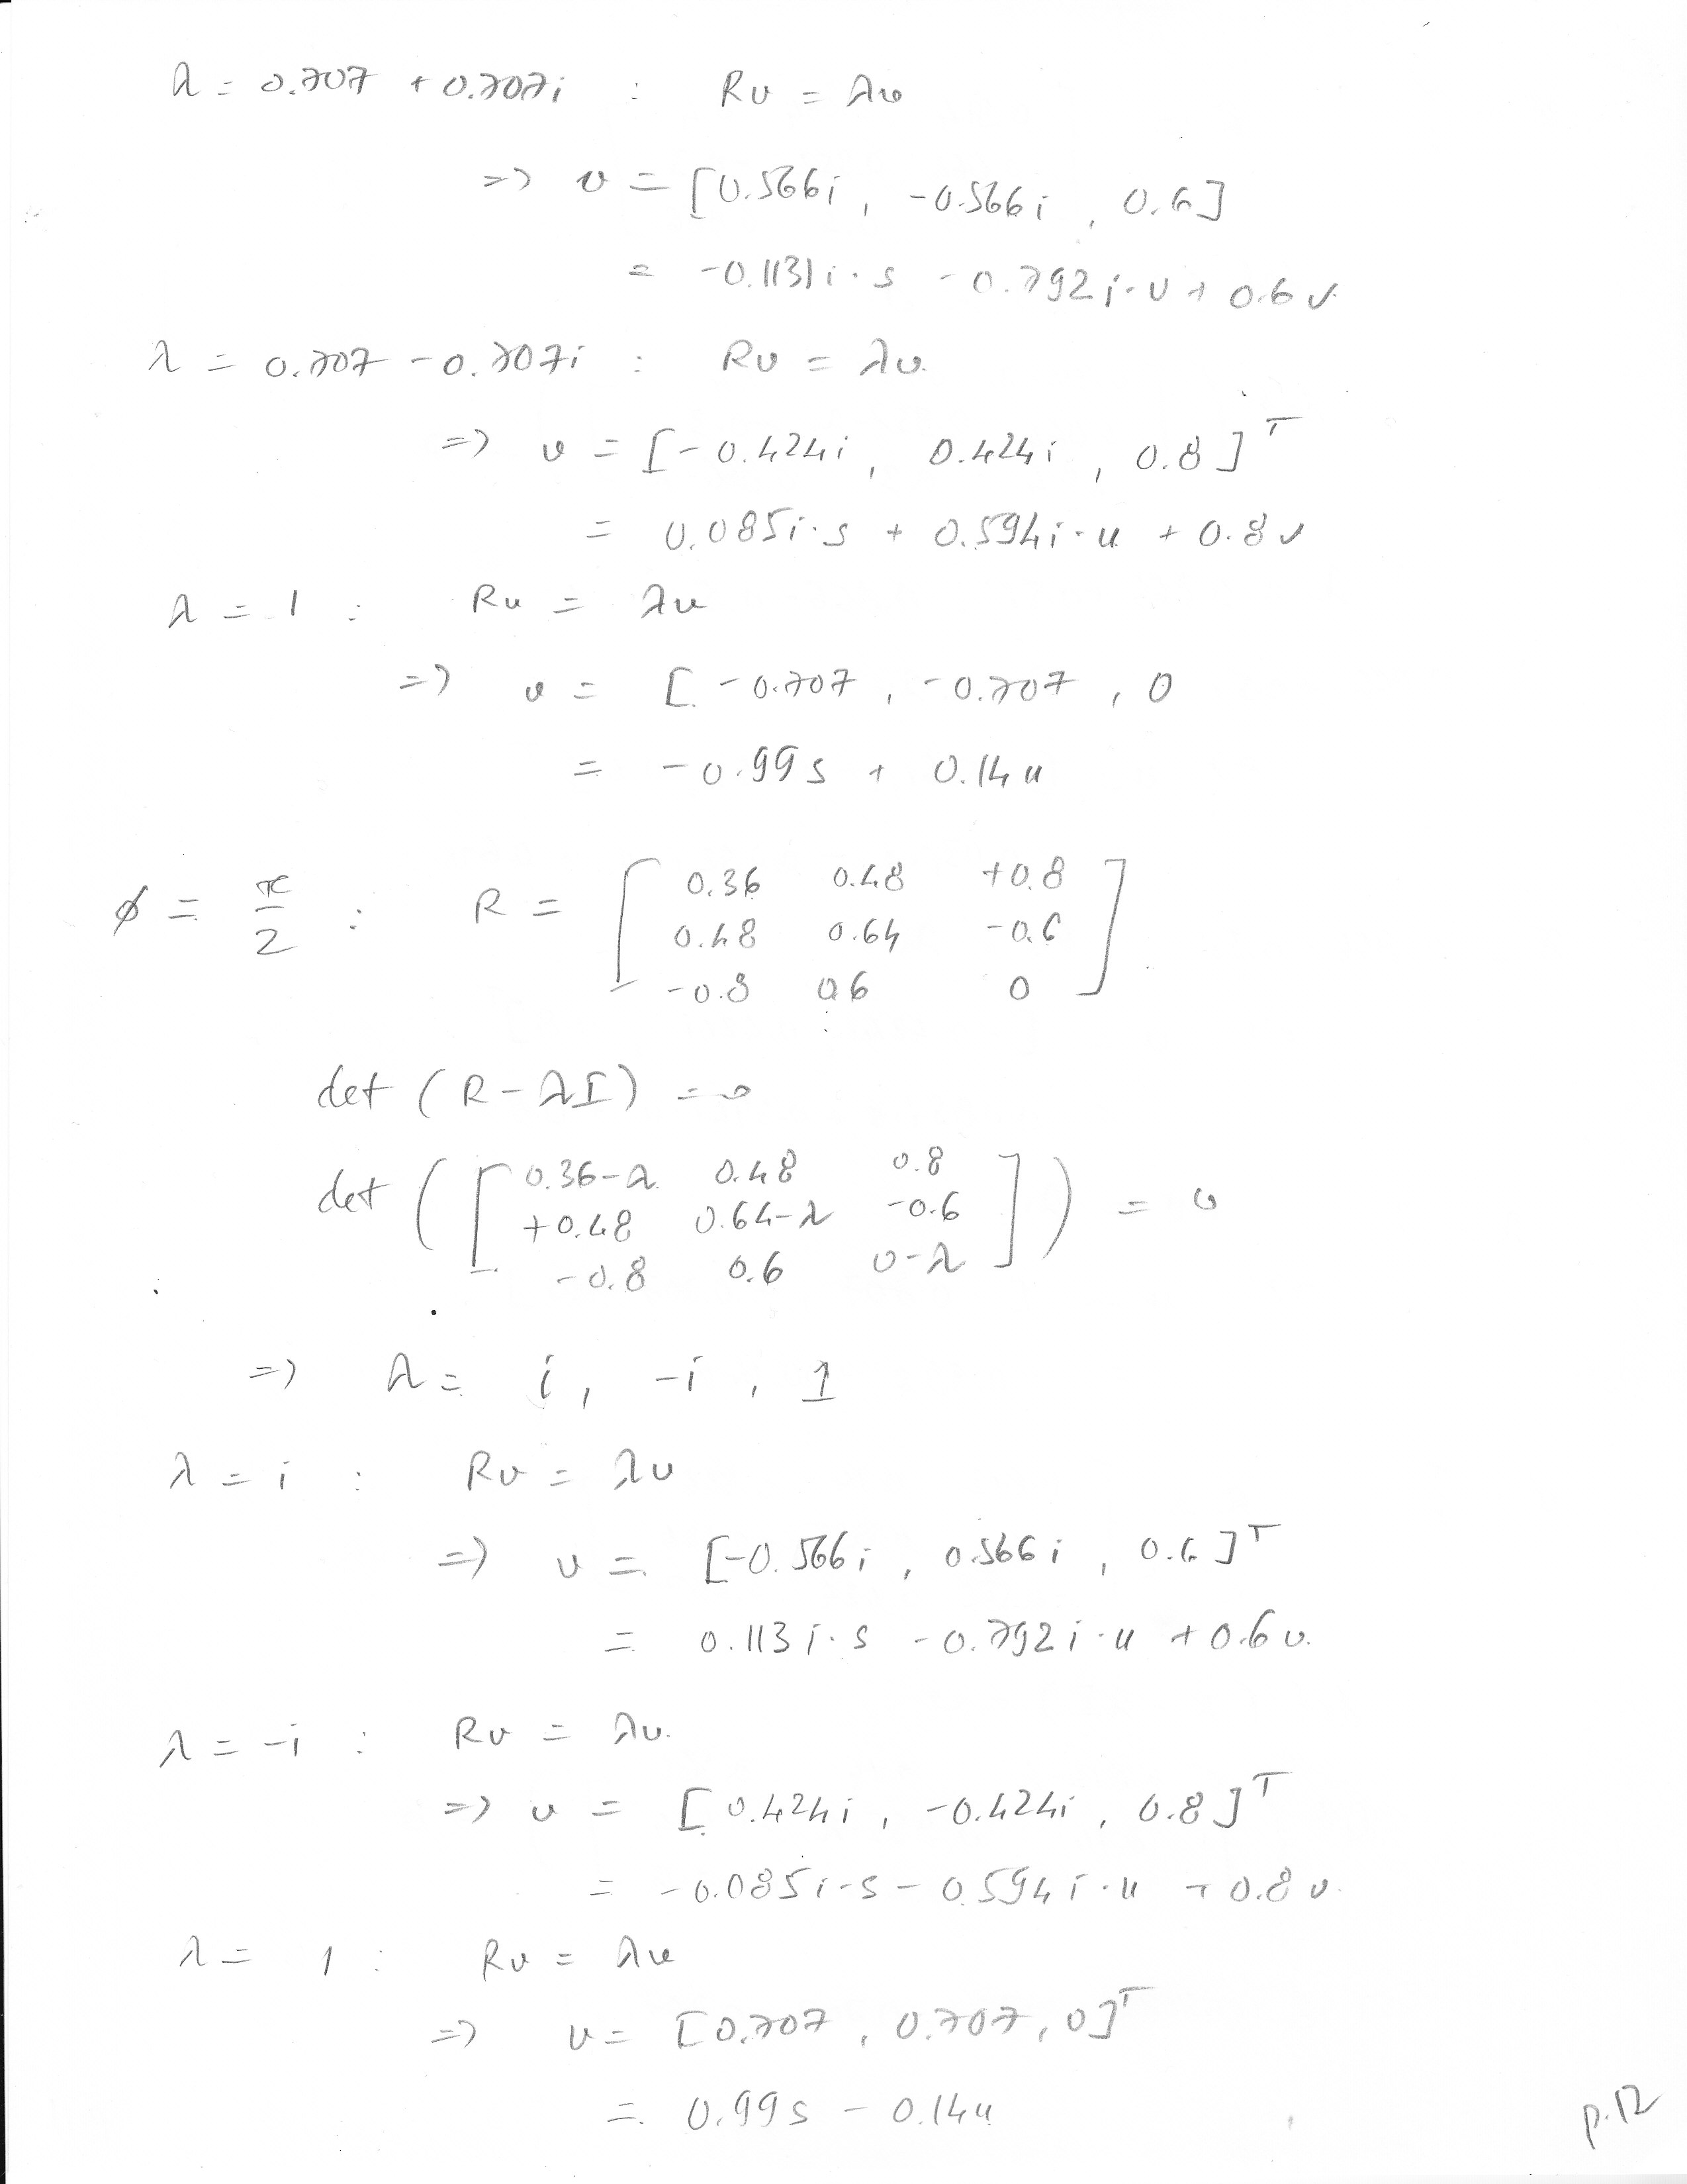 λ = 0.707 + 0.707i : Rv = λv
=> v = [0.566i, -0.566i, 0.6]
= -0.1131i·s - 0.792i·u + 0.6v
λ = 0.707 - 0.707i : Rv = λv
=> v = [-0.424i, 0.424i, 0.8]^T
= 0.085i·s + 0.594i·u + 0.8v
λ = 1 : Rv = λv
=> v = [-0.707, -0.707, 0
= -0.99s + 0.14u
ϕ = π/2 : R = [0.36 0.48 +0.8
0.48 0.64 -0.6
-0.8 0.6 0]
det (R - λI) = 0
det ([0.36-λ 0.48 0.8
+0.48 0.64-λ -0.6
-0.8 0.6 0-λ]) = 0
=> λ = i, -i, 1
λ = i : Rv = λv
=> v = [-0.566i, 0.566i, 0.6]^T
= 0.113i·s - 0.792i·u + 0.6v
λ = -i : Rv = λv
=> v = [0.424i, -0.424i, 0.8]^T
= -0.085i·s - 0.594i·u + 0.8v
λ = 1 : Rv = λv
=> v = [0.707, 0.707, 0]^T
= 0.99s - 0.14u
p.12